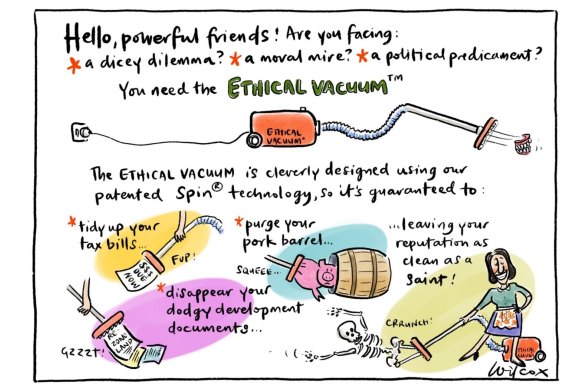 Hello, powerful friends! Are you facing:
* a dicey dilemma? * a moral mire? * a political predicament?
You need the ETHICAL VACUUM™
ETHICAL
VACUUM
The ETHICAL VACUUM is cleverly designed using our
patented Spin® technology, so it's guaranteed to:
* tidy up your
tax bills...
$$$
DUE
NOW
FUP!
* purge your
pork barrel...
SQUEEE...
...leaving your
reputation as
clean as a
saint!
* disappear your
dodgy development
documents...
RE
ZONE
LAND
GZZZT!
CRRUNCH!
ETHICAL
VACUUM
Wilcox